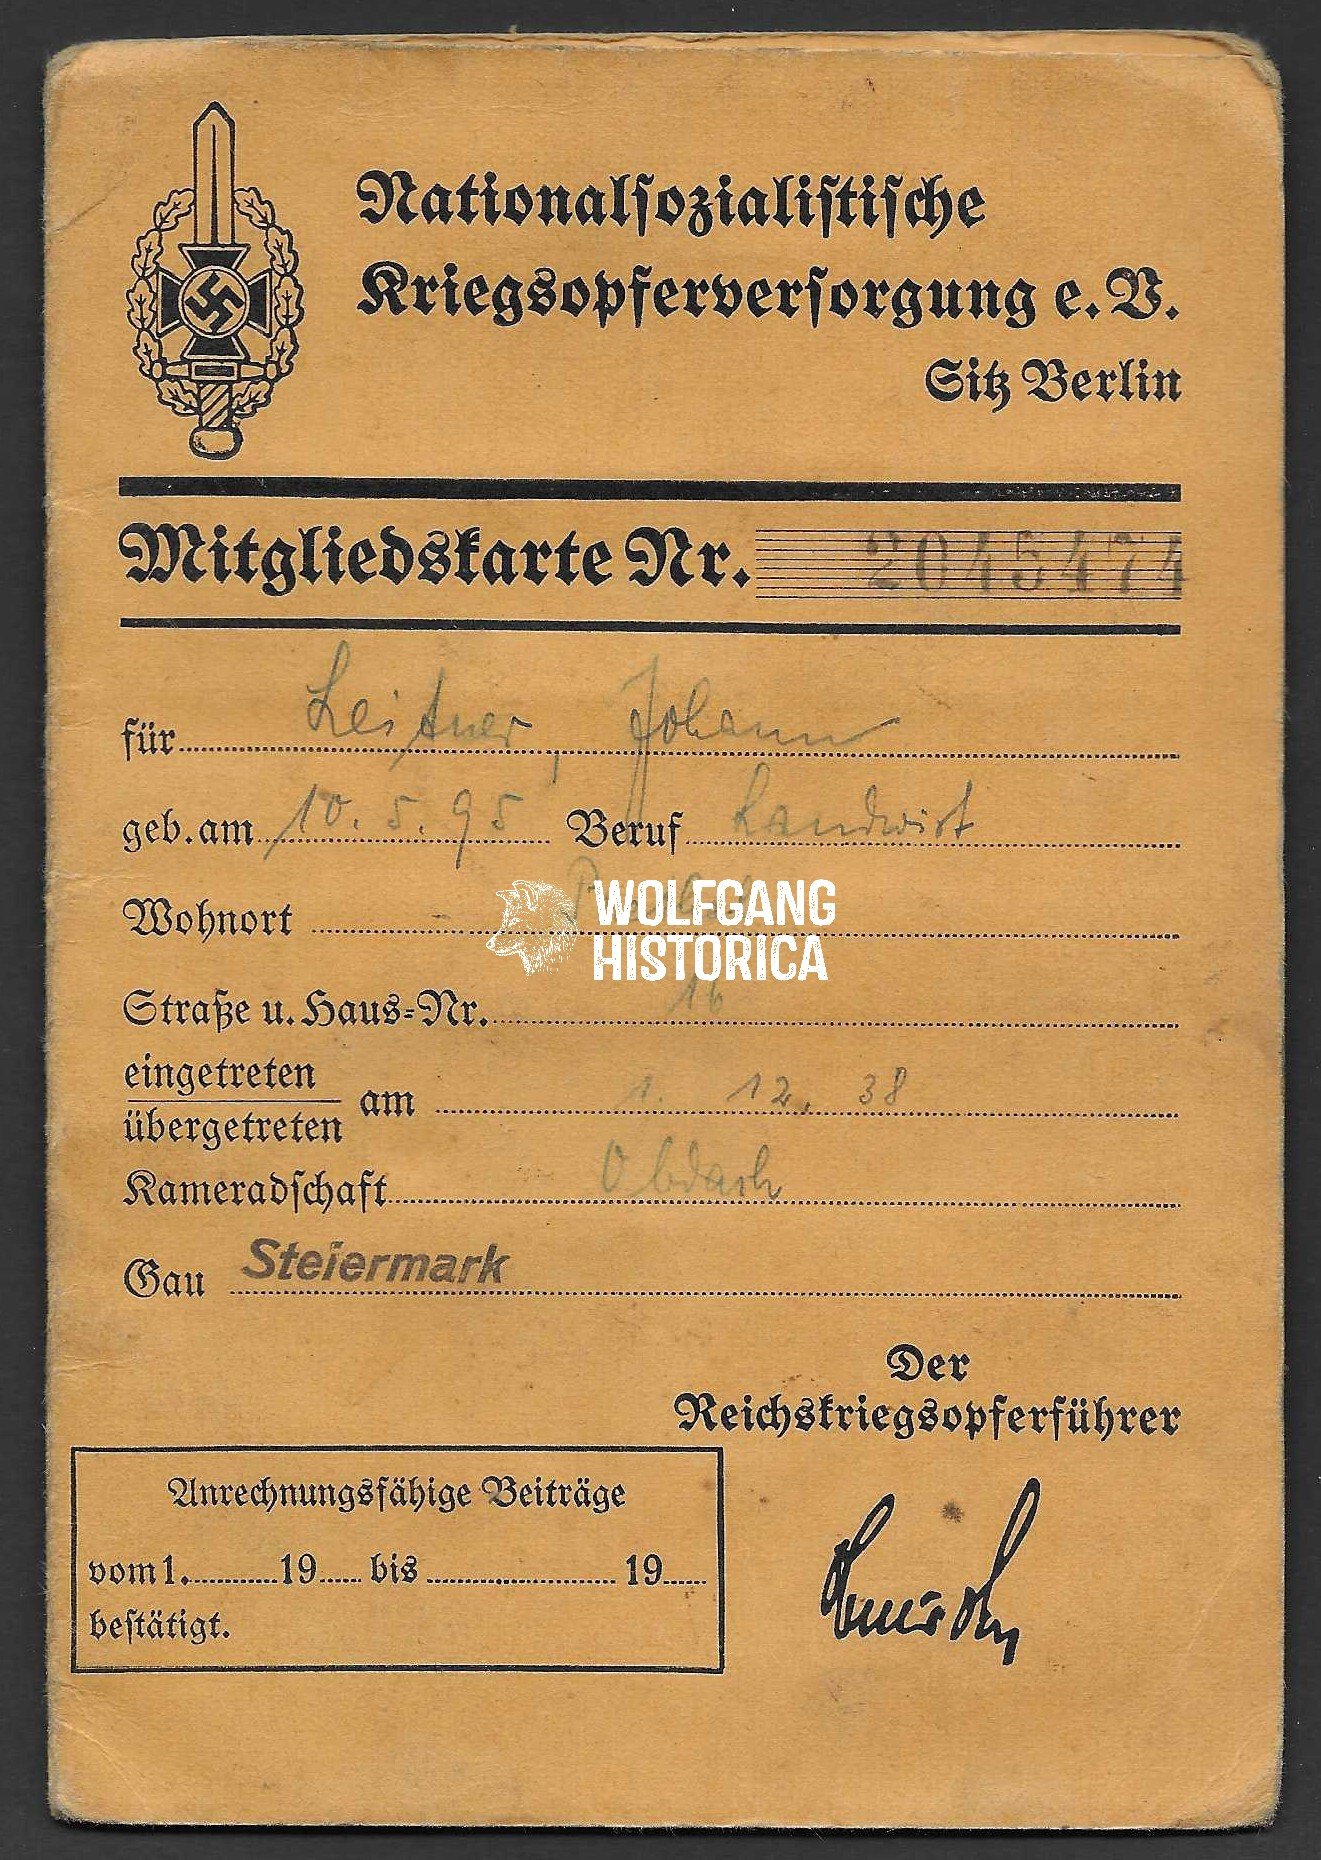 Nationalsozialistische
Kriegsopferversorgung e. V.
Sitz Berlin
Mitgliedskarte Nr. 2045474
für Leitner, Johann
geb. am 10. 5. 95 Beruf Landwirt
Wohnort
WOLFGANG
HISTORICA
Straße u. Haus-Nr. 16
eingetreten
übergetreten am 1. 12. 38
Kameradschaft Obdach
Gau Steiermark
Der
Reichskriegsopferführer
Anrechnungsfähige Beiträge
vom 1. 19 bis 19
bestätigt.